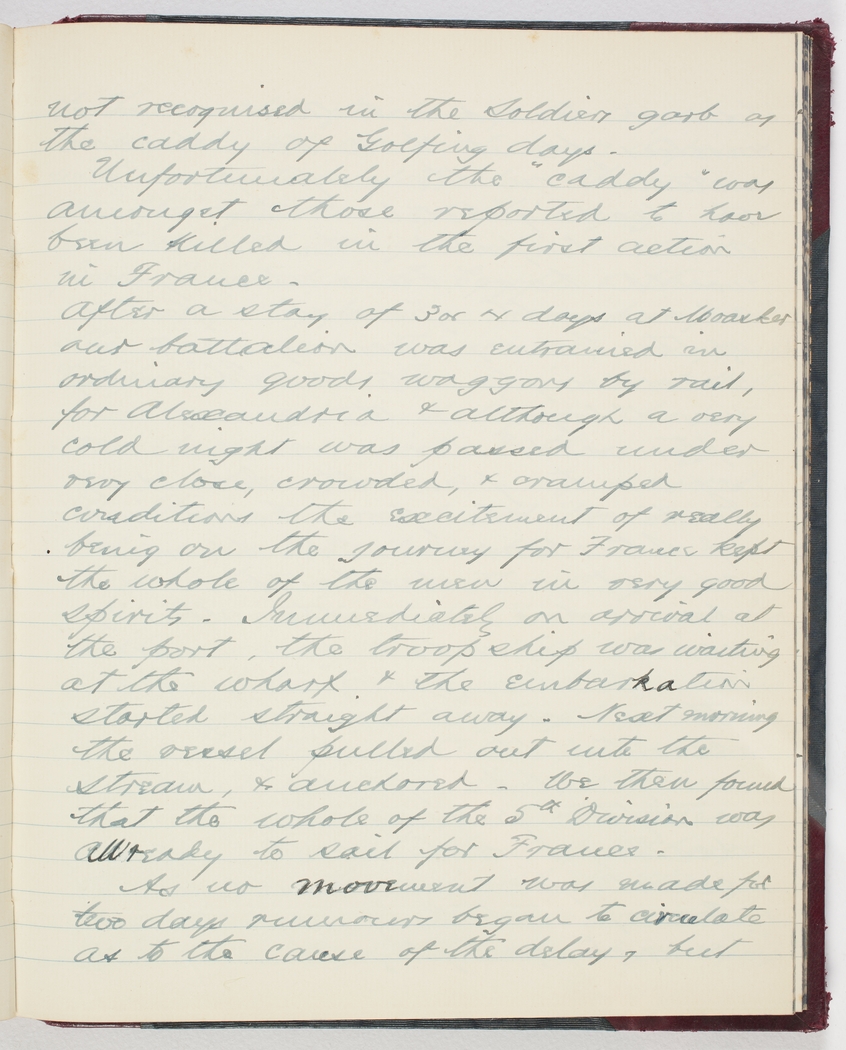 not recognised in the Soldiers garb as
the caddy of Golfing days.
Unfortunately the "caddy" was
amongst those reported to have
been killed in the first action
in France.
After a stay of 3 or 4 days at Moasker
our battalion was entrained in
ordinary goods waggons by rail,
for Alexandria & although a very
cold night was passed under
very close, crowded, & cramped
conditions the excitement of really
being on the journey for France kept
the whole of the men in very good
spirits. Immediately on arrival at
the port, the troopship was waiting
at the wharf & the embarkation
started straight away. Next morning
the vessel pulled out into the
stream, & anchored. We then found
that the whole of the 5th Division was
allready to sail for France.
As no movement was made for
two days rumours began to circulate
as to the cause of the delay, but